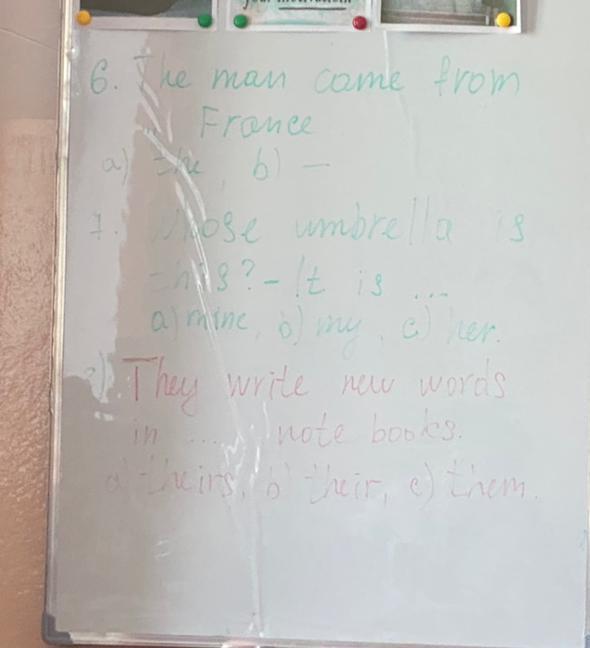 your motivation
6. The man came from
France
a) the, b) —
7. Whose umbrella is
this? - It is ...
a) mine, b) my, c) her.
8) They write new words
in ..... note books.
a) theirs, b) their, c) them.